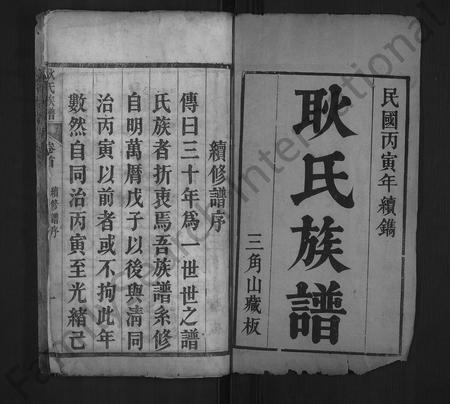 民國丙寅年續鐫
耿氏族譜
三角山藏板
續修譜序
傳曰三十年為一世世之譜
氏族者折衷焉吾族譜系修
自明萬曆戊子以後與清同
治丙寅以前者或不拘此年
數然自同治丙寅至光緒己
耿氏族譜 卷首 續修譜序 一
FamilySearch International